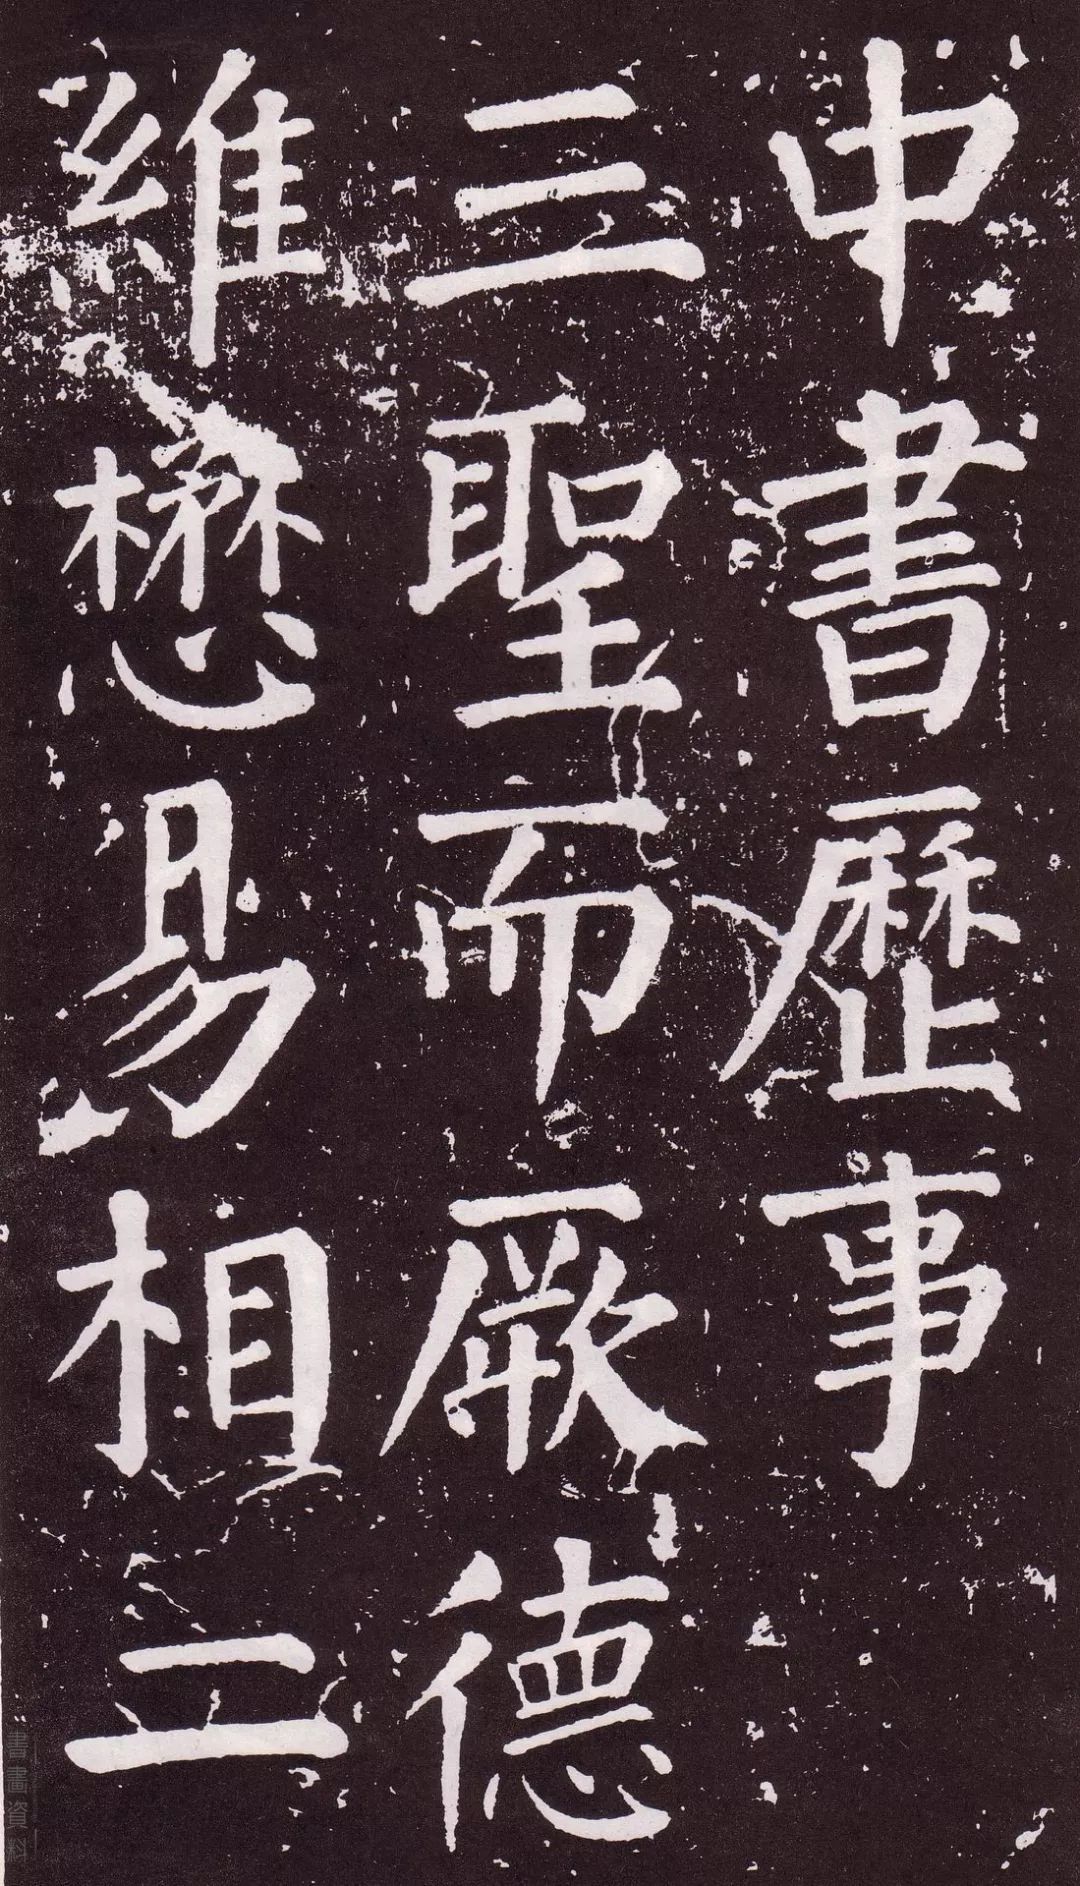 中書歷事
三聖而厥德
維懋易相二
書畫資料